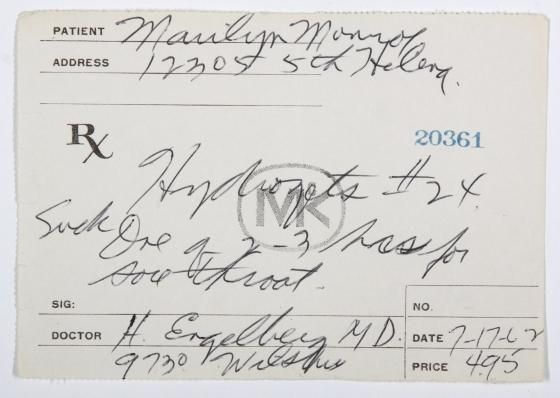 PATIENT Marilyn Monroe
ADDRESS 12305 5th Helena.
Rx 20361
Hydrozets #24.
MK
Suck One q 2-3 hrs for
sore throat.
SIG:
NO.
DOCTOR H. Engelberg MD.
DATE 7-17-62
9730 Wilshire
PRICE 4.95